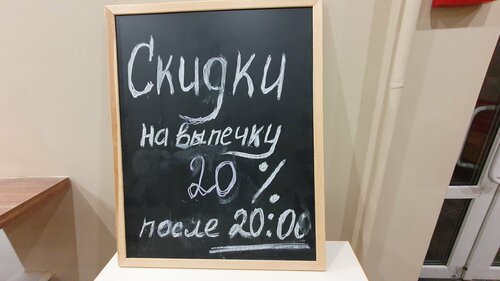 Скидки
на выпечку
20 %
после 20:00